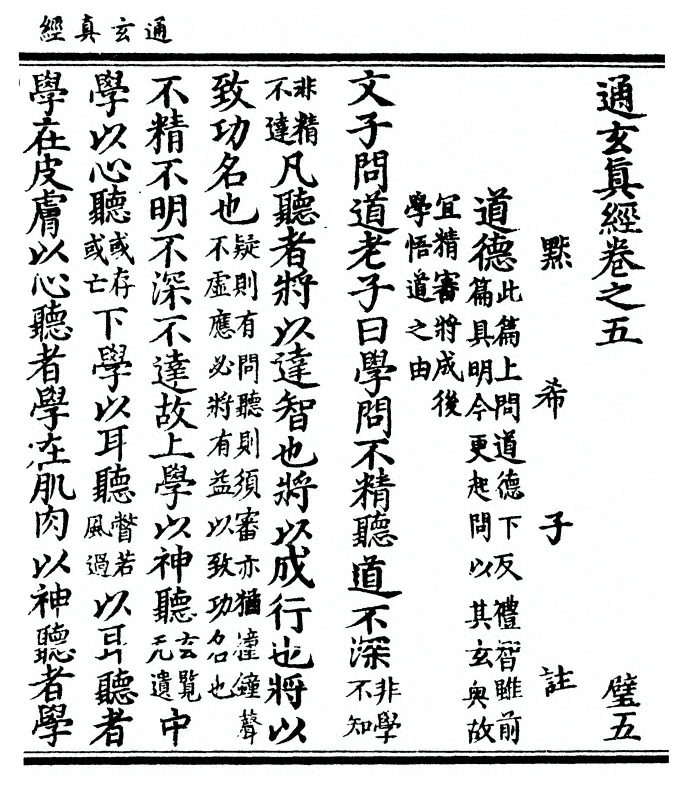 通玄真經
通玄眞經卷之五 璧五
默希子註
道德此篇上問道德下反禮智雖前篇具明今更起問以其玄奧故
宜精審將成後學悟道之由
文子問道老子曰學問不精聽道不深非學不知
非精不達凡聽者將以達智也將以成行也將以
致功名也疑則有問聽則須審亦猶撞鐘聲不虛應必將有益以致功名也
不精不明不深不達故上學以神聽玄覽无遺中
學以心聽或存或亡下學以耳聽瞥若風過以耳聽者
學在皮膚以心聽者學在肌肉以神聽者學